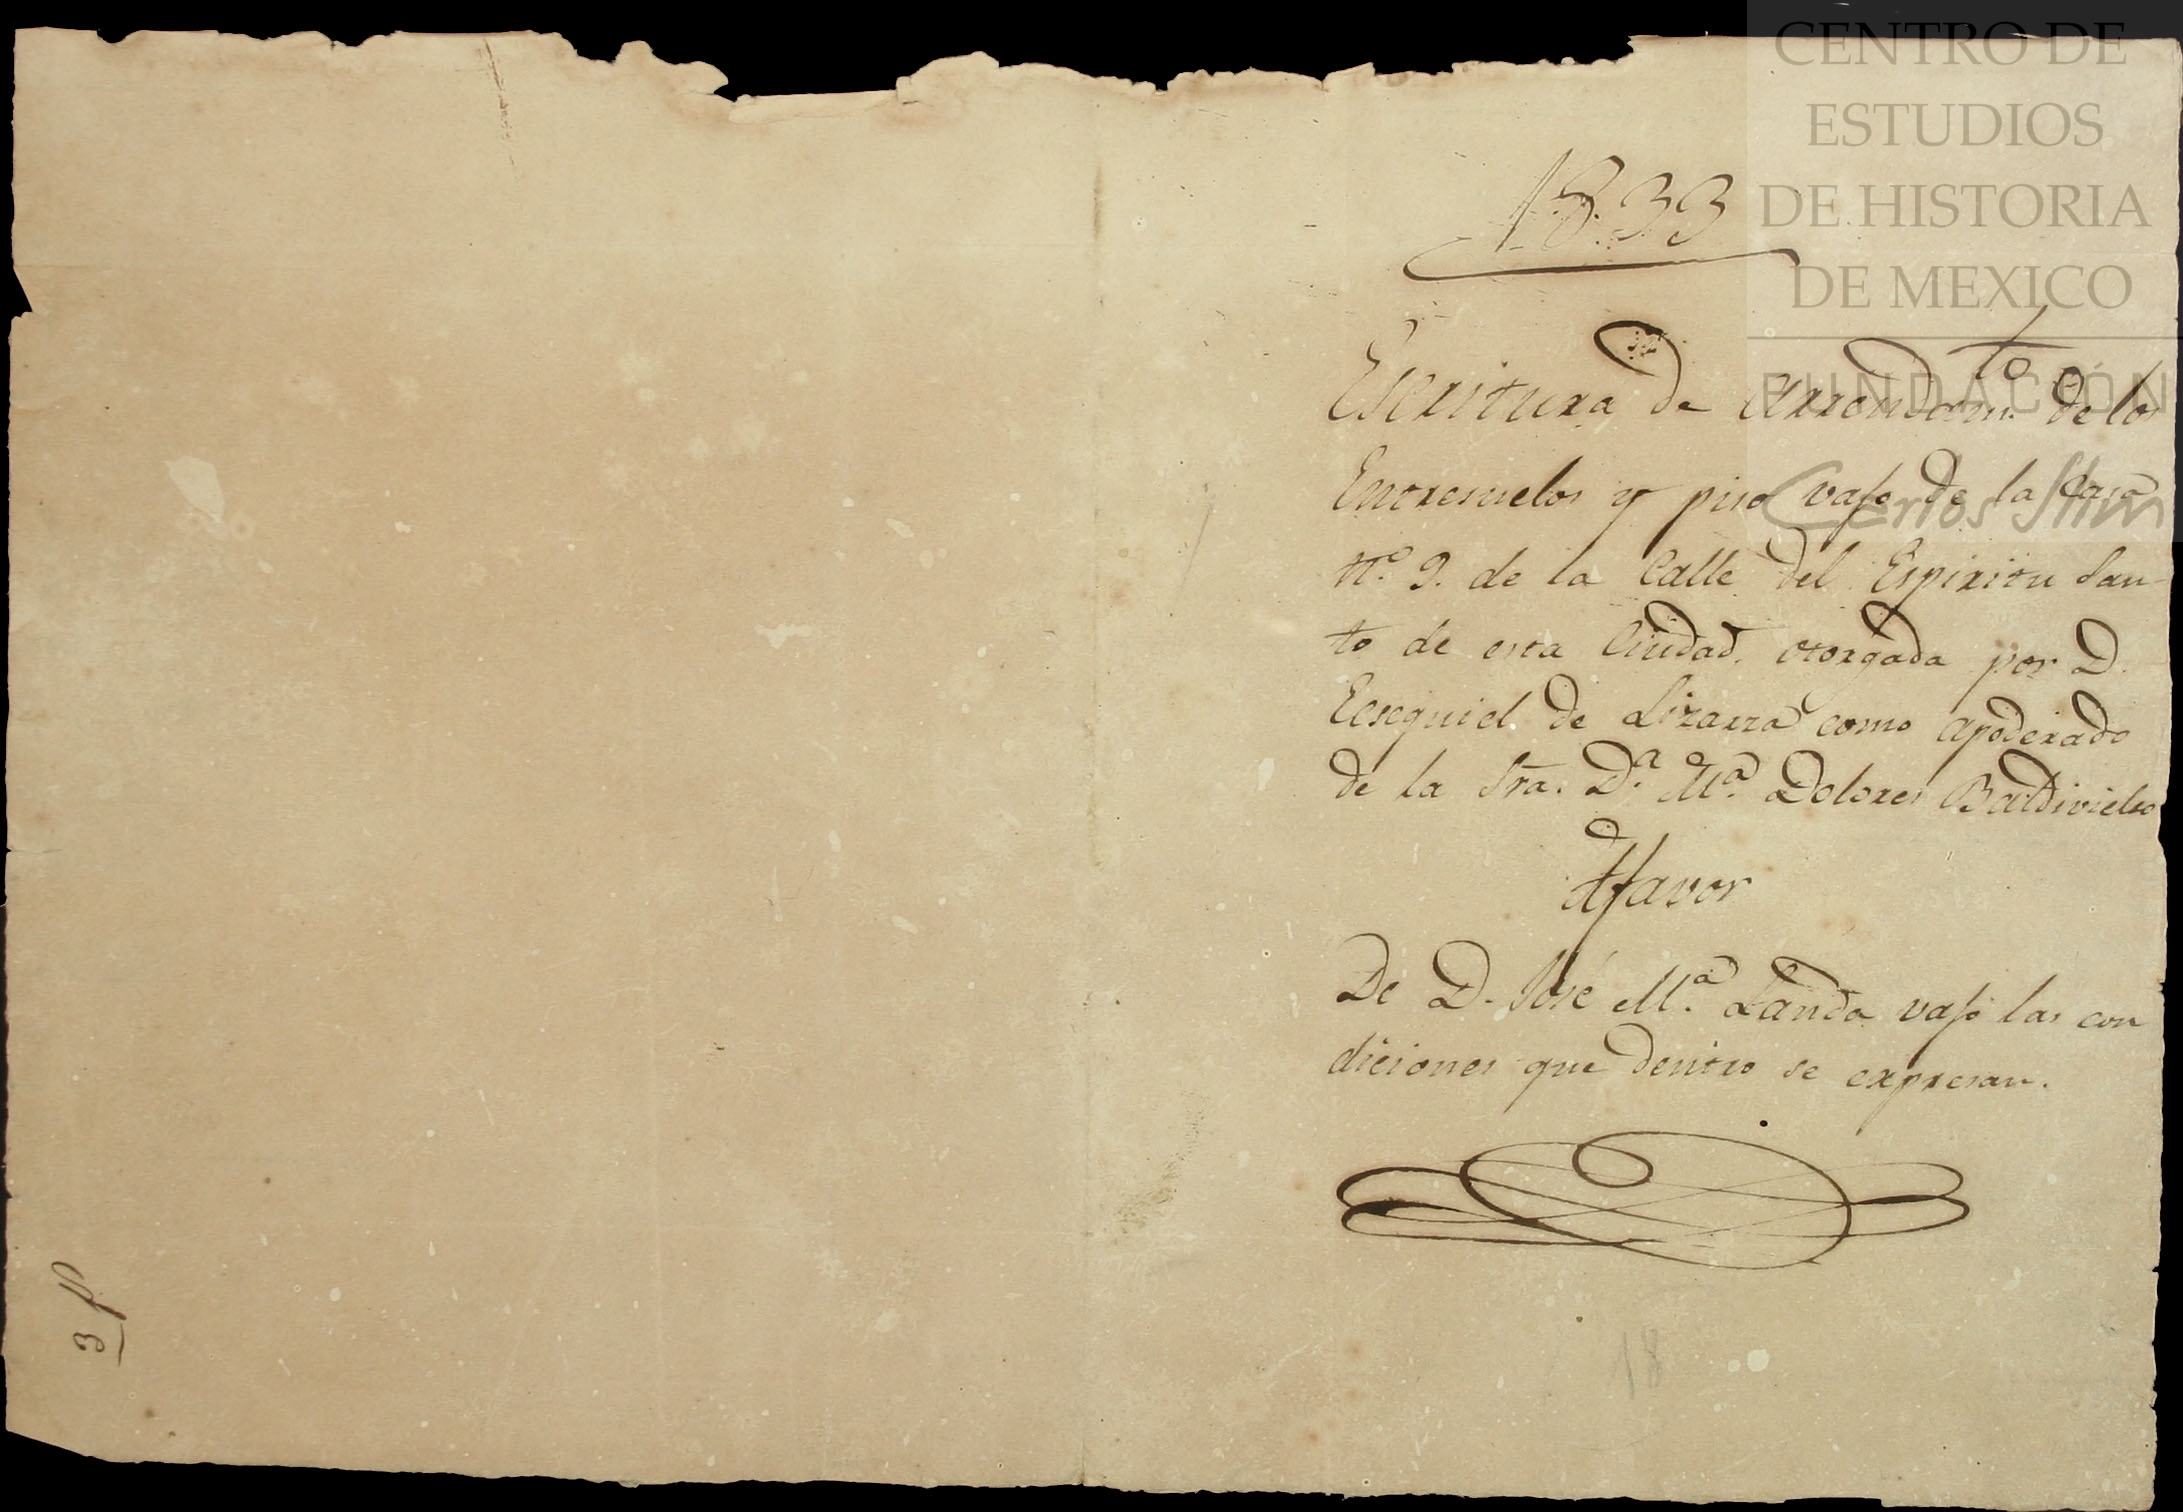 1833
Escritura de Arrendam.to de los
Entresuelos y piso vajo de la Casa
N.º 9. de la Calle del Espiritu San-
to de esta Ciudad, otorgada por D.
Eesequiel de Lizarza como apoderado
de la Sra. D.ª M.ª Dolores Baldivielso
Afavor
De D. José M.ª Landa vajo las con
diciones que dentro se expresan.
18
3 f
CENTRO DE
ESTUDIOS
DE HISTORIA
DE MEXICO
FUNDACIÓN
Carlos Slim